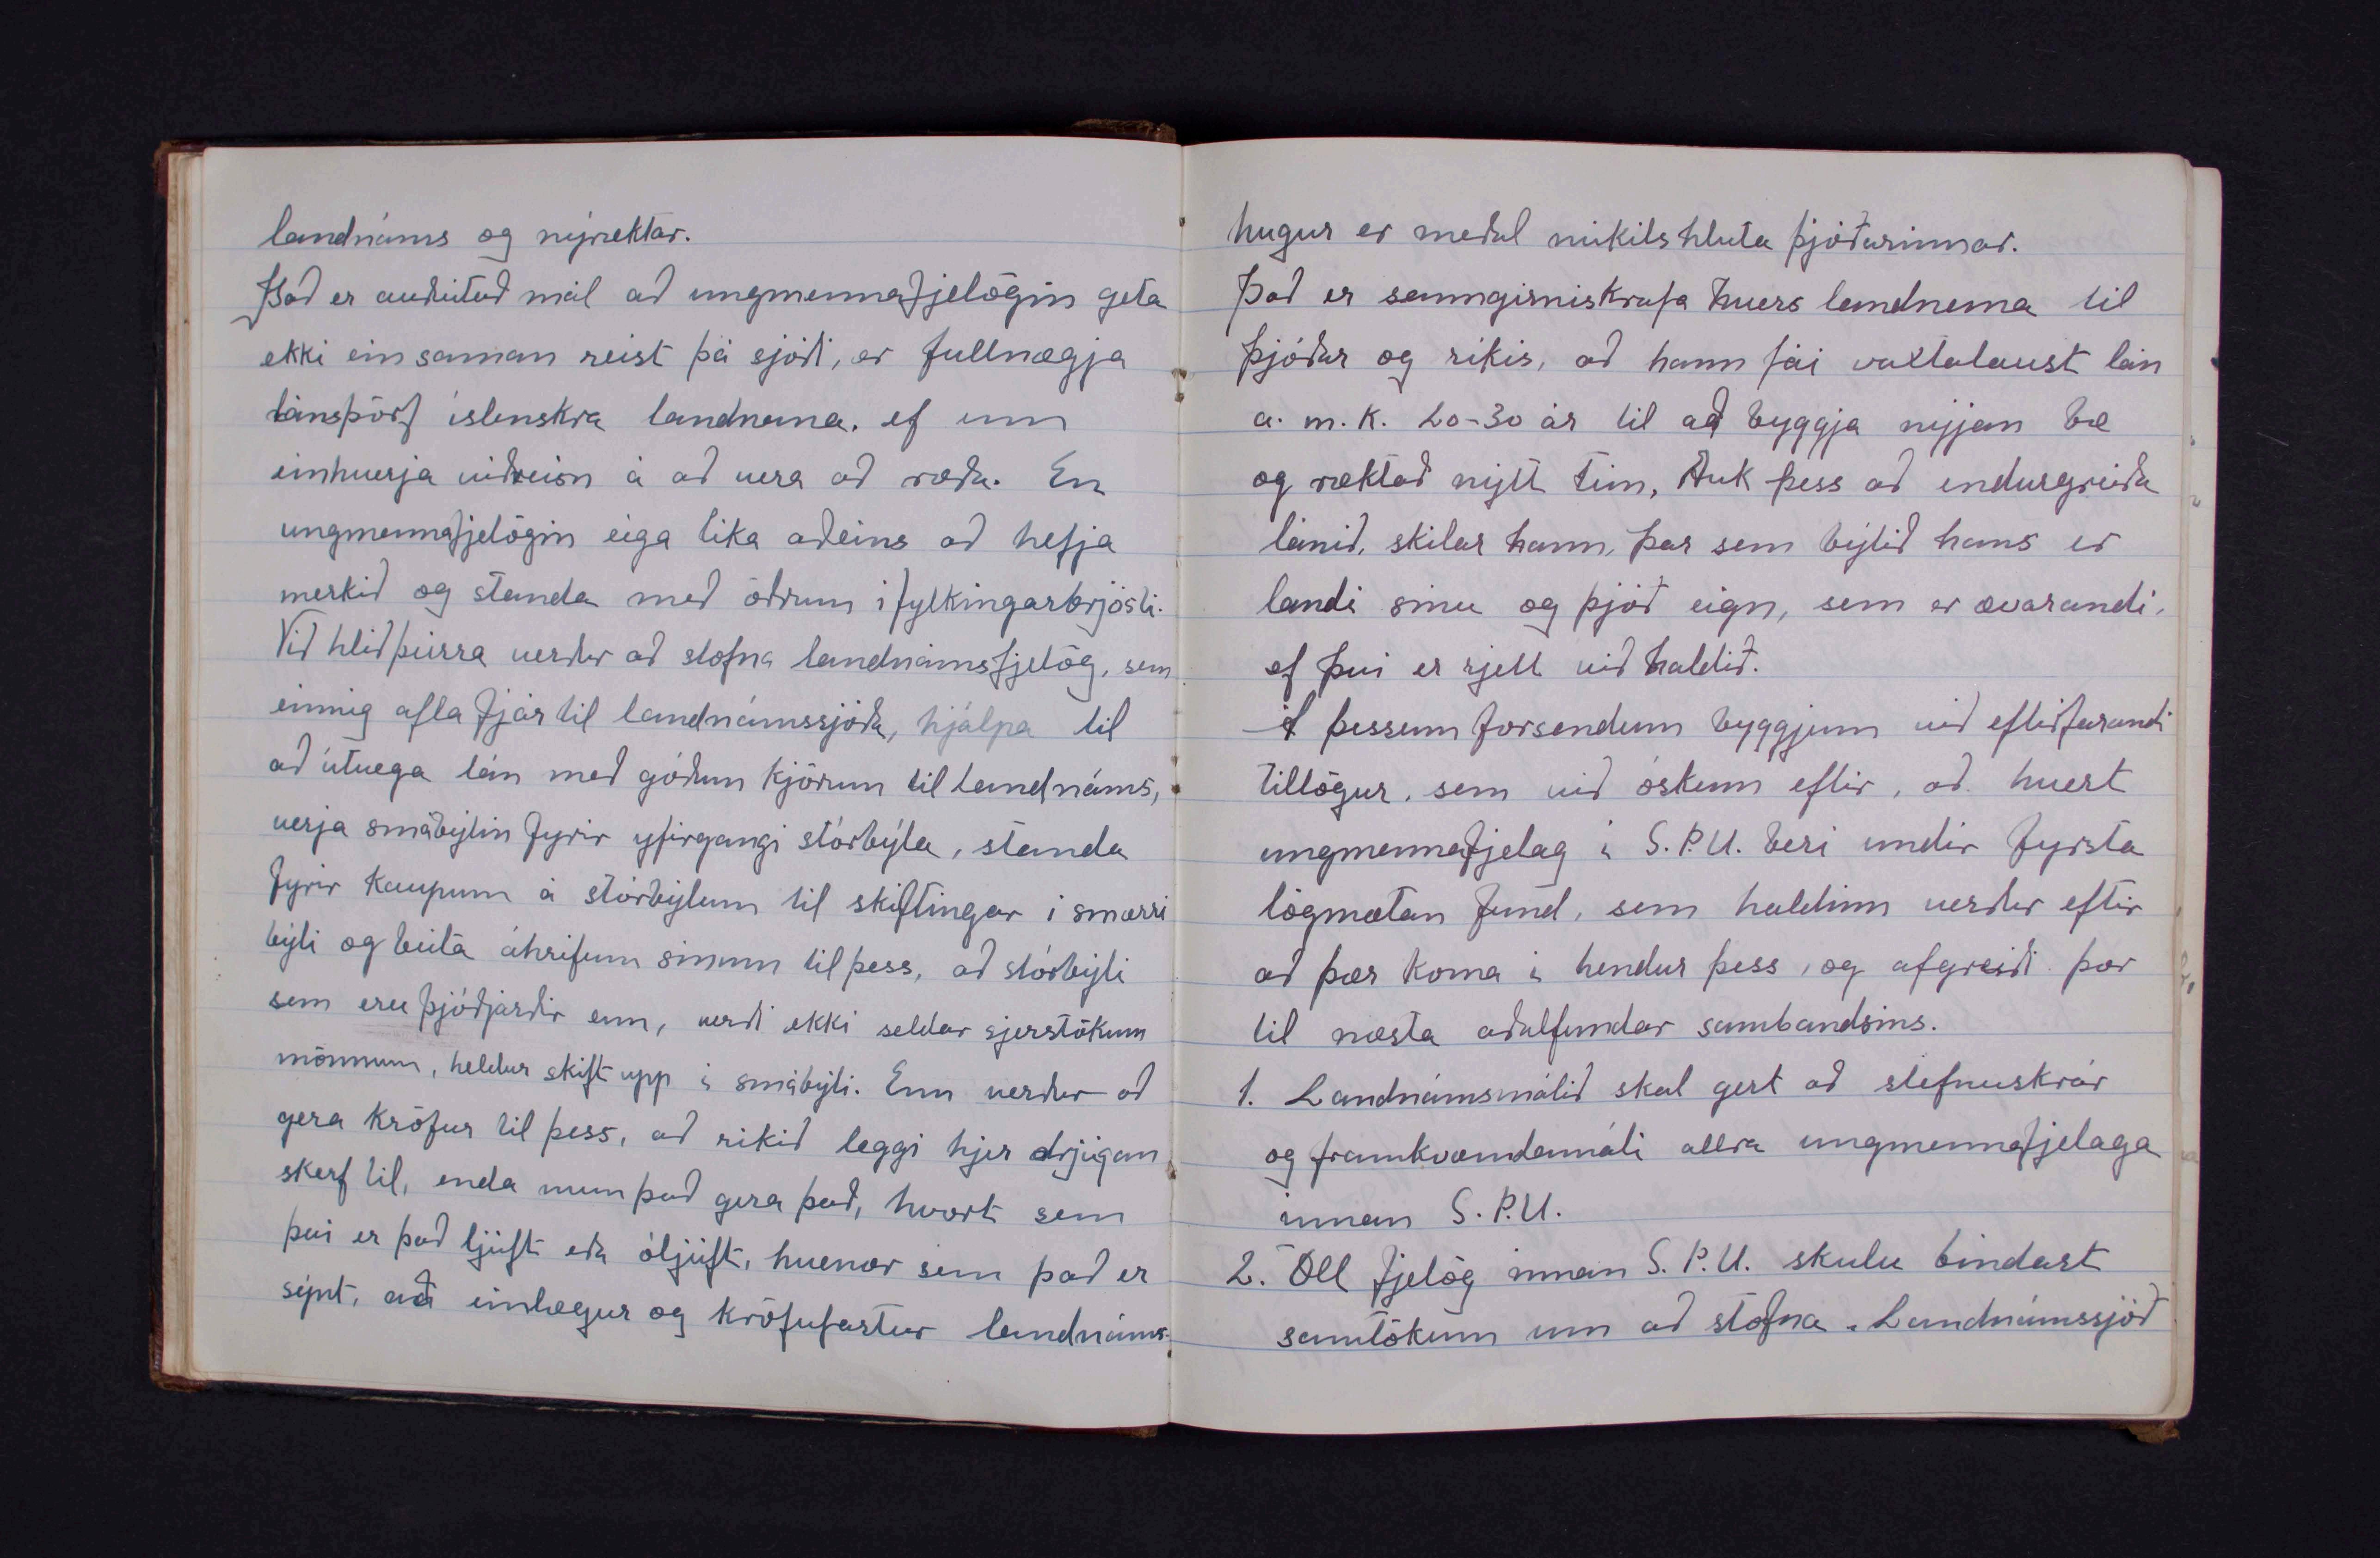 landnáms og nýrektar.
Það er auðvitað mál að ungmennafjelögin geta
ekki ein saman reist þá sjóði, er fullnægja
lánsþörf íslenskra landnema, ef um
einhverja viðreisn á að vera að ræða. En
ungmennafjelögin eiga líka aðeins að hefja
merkið og standa með öðrum í fylkingarbrjósti.
Við hlið þeirra verður að stofna landnámsfjelög, sem
einnig afla fjár til landnámssjóða, hjálpa til
að útvega lán með góðum kjörum til landnáms,
verja smábýlin fyrir yfirgangi stórbýla, standa
fyrir kaupum á stórbýlum til skiftingar í smærri
býli og beita áhrifum sínum til þess, að stórbýli
sem eru þjóðjarðir enn, verði ekki seldar sjerstökum
mönnum, heldur skift upp í smábýli. Enn verður að
gera kröfur til þess, að ríkið leggi hjer drjúgan
skerf til, enda mun það gera það, hvort sem
því er það ljúft eða óljúft, hvenær sem það er
sýnt, að einlægur og kröfufastur landnáms-
hugur er meðal mikils hluta þjóðarinnar.
Það er sanngirniskrafa hvers landnema til
þjóðar og ríkis, að hann fái vaxtalaust lán
a. m. k. 20-30 ár til að byggja nýjan bæ
og ræktað nýtt tún, Auk þess að endurgreiða
lánið, skilar hann, þar sem býlið hans er
landi sínu og þjóð eign, sem er ævarandi,
ef því er rjett við haldið.
Á þessum forsendum byggjum við eftirfarandi
tillögur, sem við óskum eftir, að hvert
ungmennafjelag í S.Þ.U. beri undir fyrsta
lögmætan fund, sem haldinn verður eftir
að þær koma í hendur þess, og afgreiði þær
til næsta aðalfundar sambandsins.
1. Landnámsmálið skal gert að stefnuskrár
og framkvæmdamáli allra ungmennafjelaga
innan S.Þ.U.
2. Öll fjelög innan S.Þ.U. skulu bindast
samtökum um að stofna „Landnámssjóð